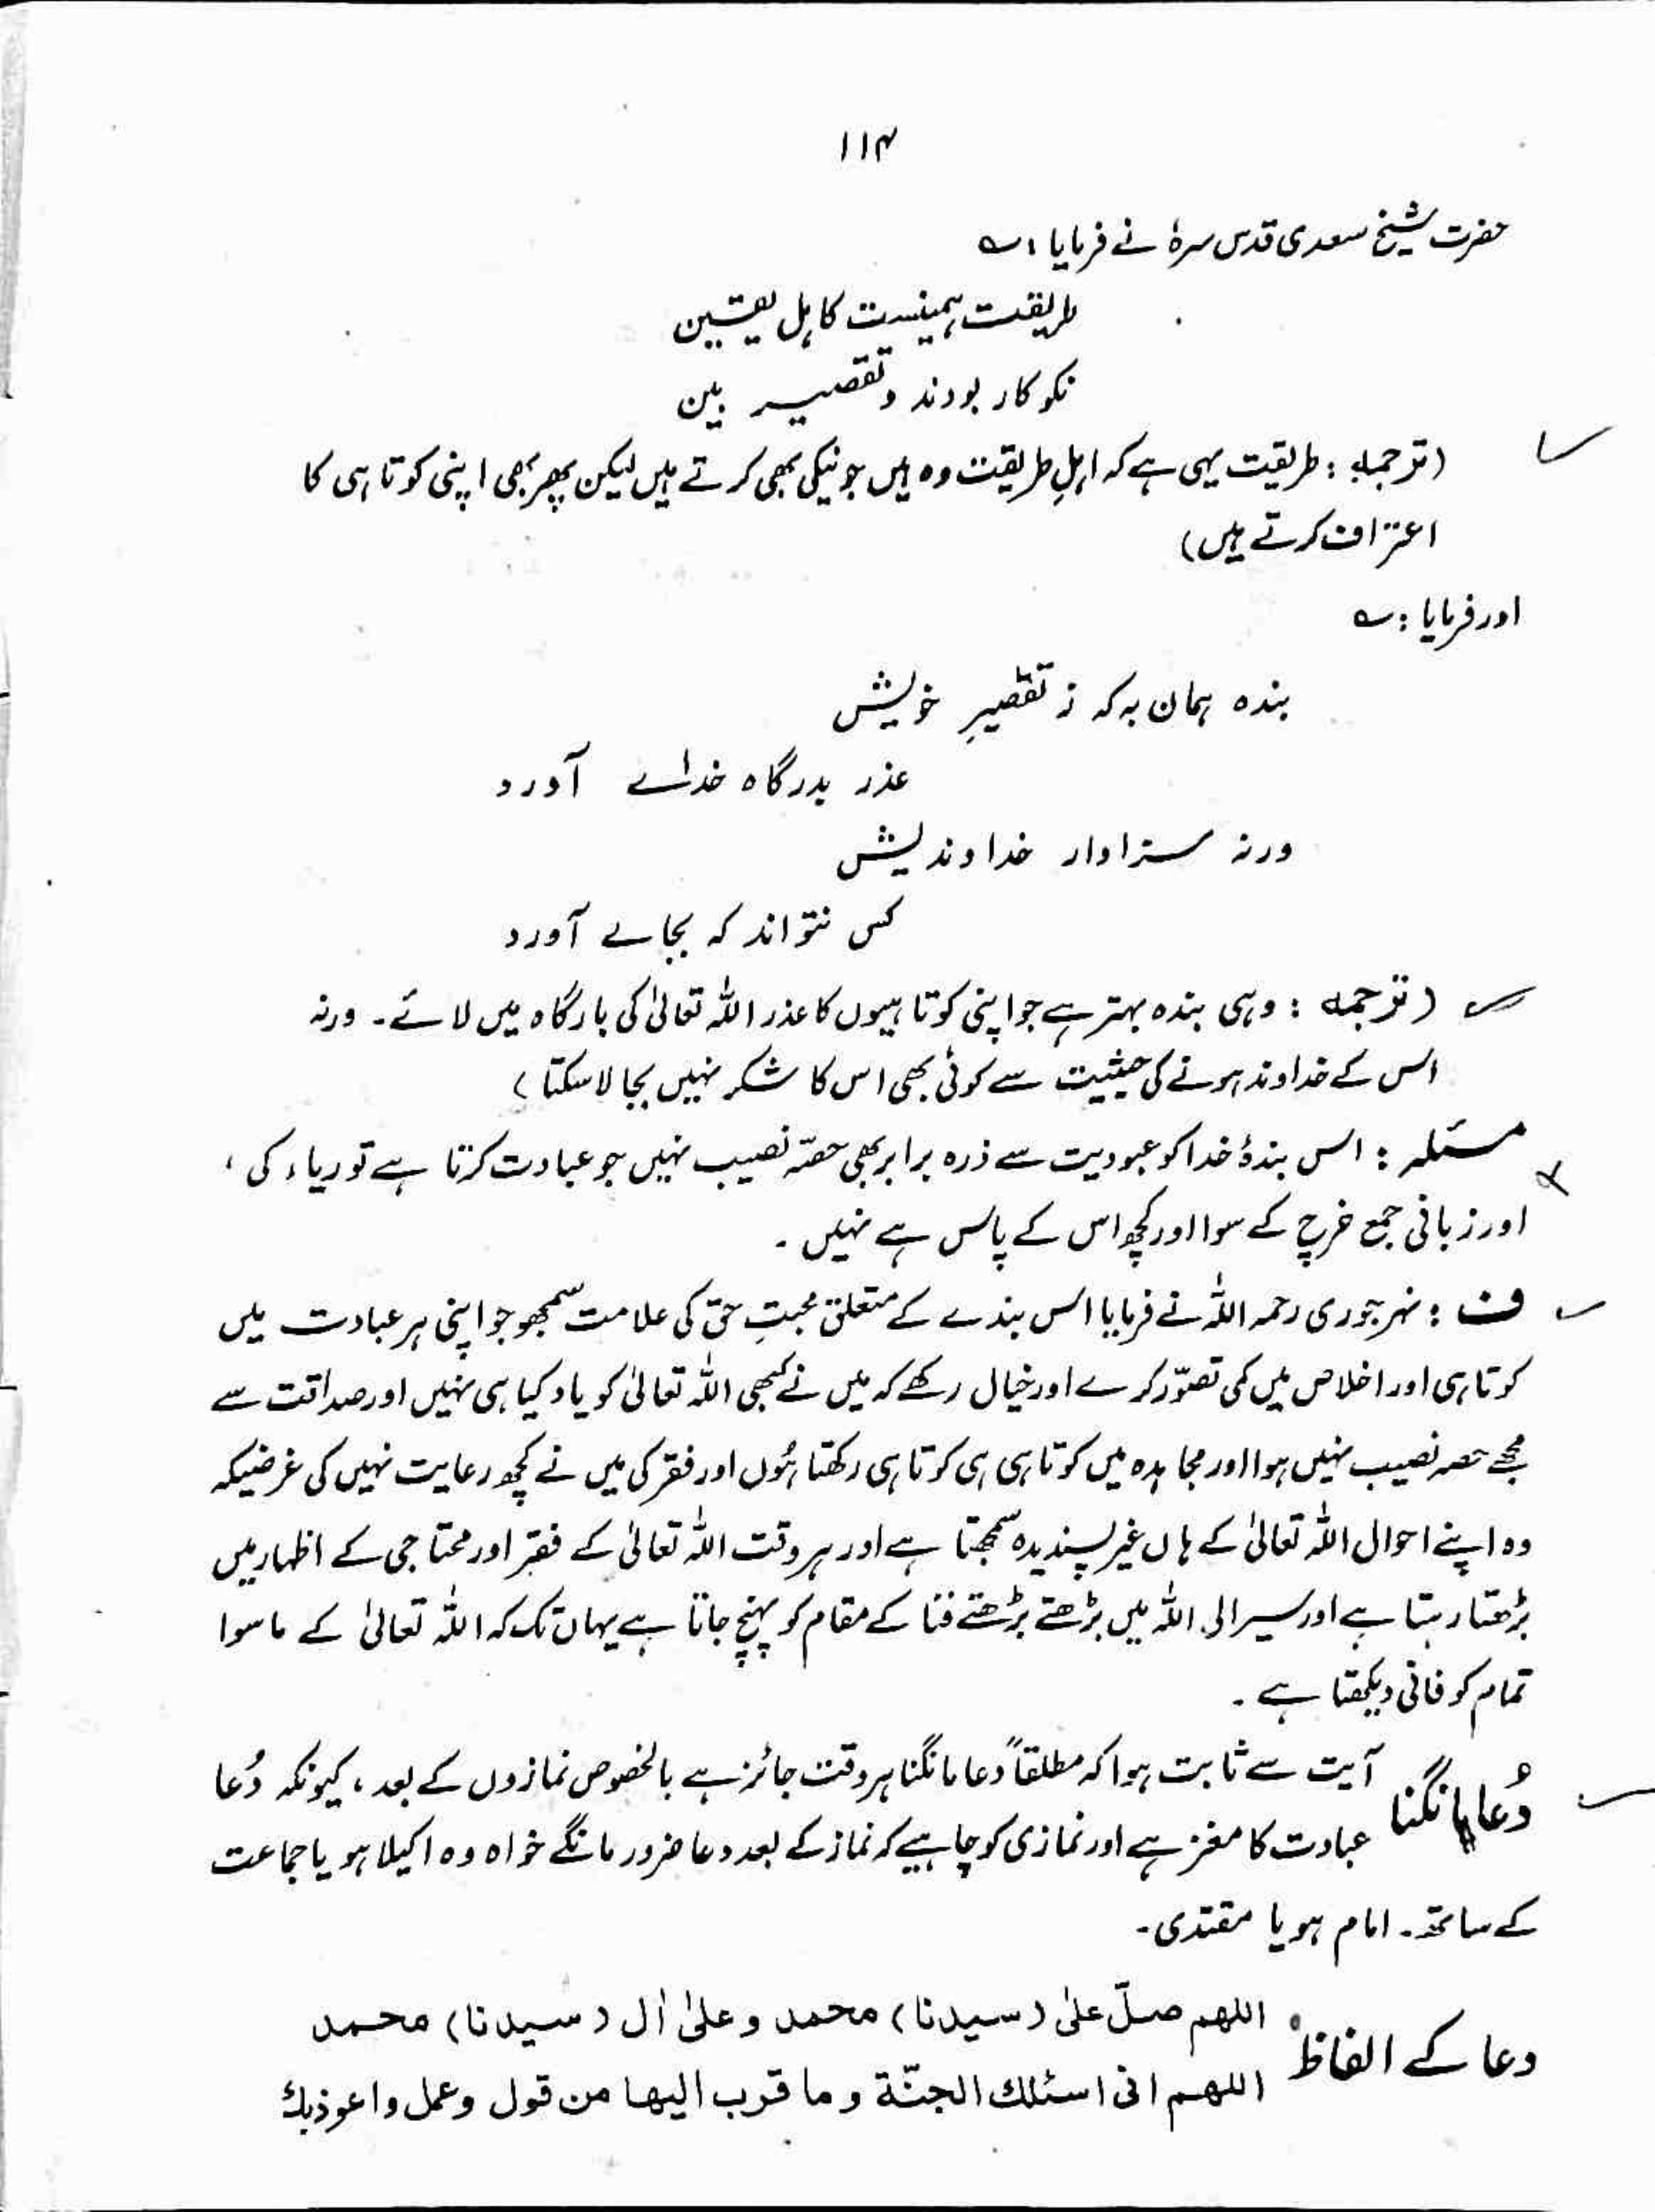 ۱۱۴
حضرت شیخ سعدی قدس سرہٗ نے فرمایا : ؎
طریقت ہمینست کاہل یقین
نکو کار بودند و تقصیر بین
(ترجمہ : طریقت یہی ہے کہ اہلِ طریقت وہ ہیں جو نیکی بھی کرتے ہیں لیکن پھر بھی اپنی کوتاہی کا
اعتراف کرتے ہیں)
اور فرمایا : ؎
بندہ ہمان بہ کہ ز تقصیرِ خویش
عذر بدرگاہ خدائے آورد
ورنہ سزاوار خداوندیش
کس نتواند کہ بجائے آورد
(ترجمہ : وہی بندہ بہتر ہے جو اپنی کوتاہیوں کا عذر اللہ تعالیٰ کی بارگاہ میں لائے۔ ورنہ
اس کے خداوند ہونے کی حیثیت سے کوئی بھی اس کا شکر نہیں بجا لا سکتا)
مسئلہ : اس بندۂ خدا کو عبودیت سے ذرہ برابر بھی حصّہ نصیب نہیں جو عبادت کرتا ہے تو ریاء کی ،
اور زبانی جمع خرچ کے سوا اور کچھ اس کے پاس ہے نہیں ۔
ف : نہرجوری رحمہ اللہ نے فرمایا اس بندے کے متعلق محبتِ حق کی علامت سمجھو جو اپنی ہر عبادت میں
کوتاہی اور اخلاص میں کمی تصوّر کرے اور خیال رکھے کہ میں نے کبھی اللہ تعالیٰ کو یاد کیا ہی نہیں اور صداقت سے
مجھے حصہ نصیب نہیں ہوا اور مجاہدہ میں کوتاہی ہی کوتاہی رکھتا ہُوں اور فقر کی میں نے کچھ رعایت نہیں کی غرضیکہ
وہ اپنے احوال اللہ تعالیٰ کے ہاں غیر پسندیدہ سمجھتا ہے اور ہر وقت اللہ تعالیٰ کے فقر اور محتاجی کے اظہار میں
بڑھتا رہتا ہے اور سیر الی اللہ میں بڑھتے بڑھتے فنا کے مقام کو پہنچ جاتا ہے یہاں تک کہ اللہ تعالیٰ کے ماسوا
تمام کو فانی دیکھتا ہے ۔
دُعا مانگنا آیت سے ثابت ہوا کہ مطلقاً دعا مانگنا ہر وقت جائز ہے بالخصوص نمازوں کے بعد ، کیونکہ دُعا
عبادت کا مغز ہے اور نمازی کو چاہیے کہ نماز کے بعد دعا ضرور مانگے خواہ وہ اکیلا ہو یا جماعت
کے ساتھ۔ امام ہو یا مقتدی۔
دعا کے الفاظ اللهم صلّ علیٰ (سیدنا) محمد و علیٰ اٰل (سیدنا) محمد
اللهم انی اسئلك الجنّة و ما قرب الیها من قول وعمل واعوذبك